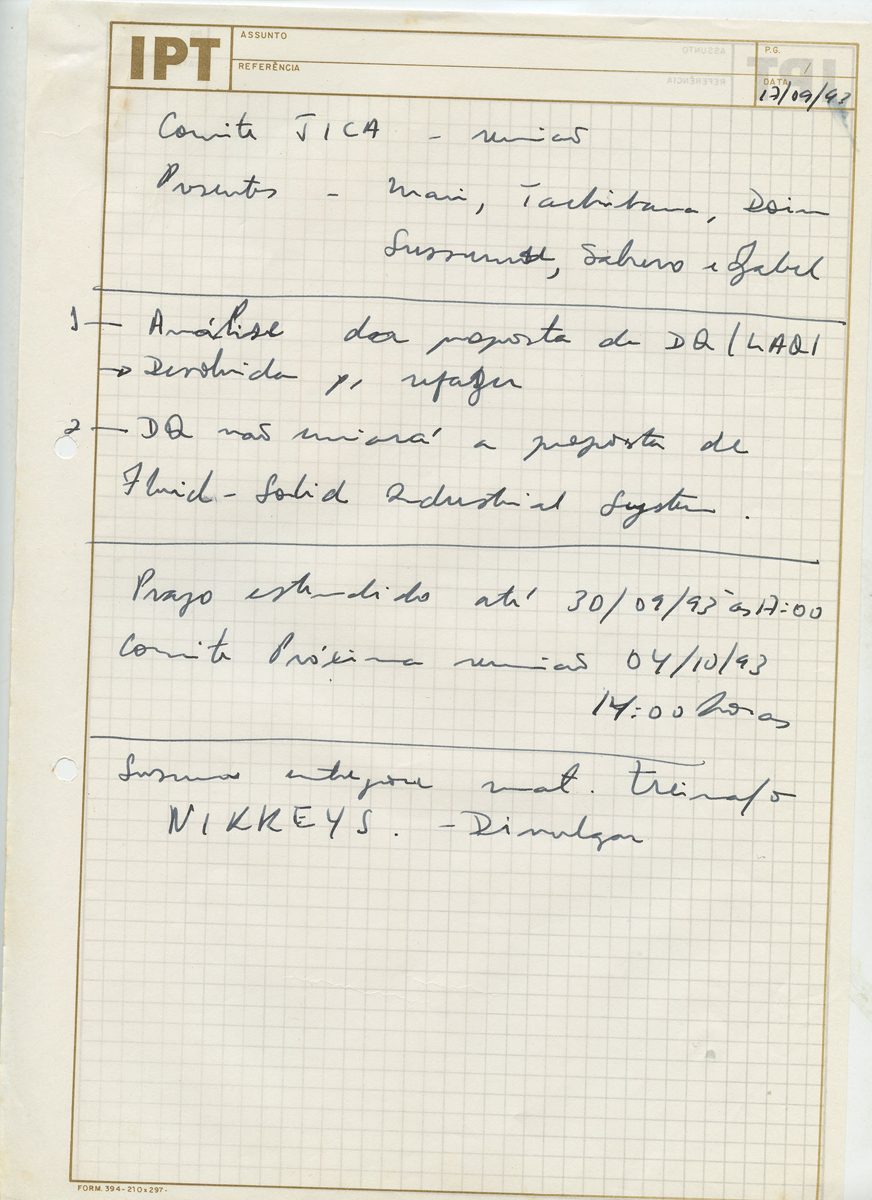 IPT
ASSUNTO
REFERÊNCIA
P.G.
DATA
17/09/93
Comite JICA - reunião
Presentes - Mari, Tachibana, Doin
Sussumu, Saburo e Izabel
1 — Análise da proposta da DQ/LAQI
→ Devolvida p/ refazer
2 — DQ não enviará a proposta de
Fluid-Solid Industrial System.
Prazo estendido até 30/09/93 às 17:00
Comite Próxima reunião 04/10/93
14:00 horas
mat.
NIKKEYS. - Divulgar
FORM. 394-210x297-